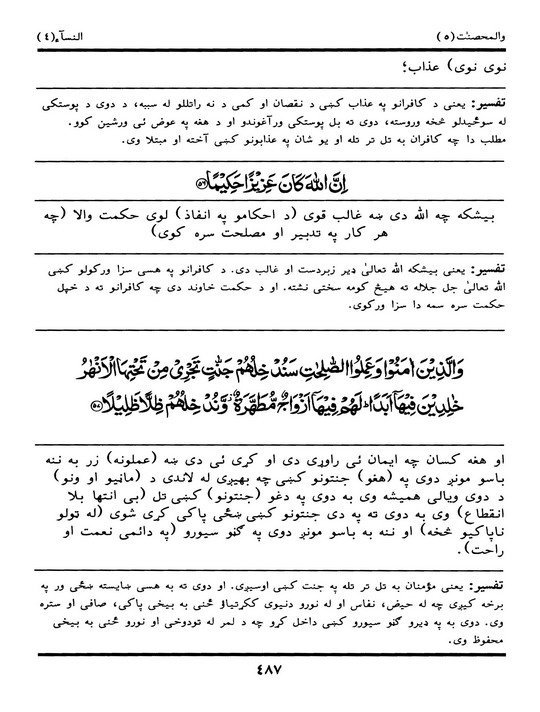 والمحصنٰت (٥) النسآء (٤)
نوى نوى) عذاب؛
تفسير: يعنى د كافرانو په عذاب كښى د نقصان او كمى د نه راتللو له سببه، د دوى د پوستكى
له سوځيدلو څخه وروسته، دوى ته بل پوستكى ورآغوندو او د هغه په عوض ئى ورشين كوو.
مطلب دا چه كافران به تل تر تله او يو شان په عذابونو كښى آخته او مبتلا وى.
اِنَّ اللهَ كَانَ عَزِيْزًا حَكِيْمًا ﴿٥٦﴾
بيشكه چه الله دى ښه غالب قوى (د احكامو په انفاذ) لوى حكمت والا (چه
هر كار په تدبير او مصلحت سره كوى)
تفسير: يعنى بيشكه الله تعالىٰ ډير زبردست او غالب دى. د كافرانو په هسى سزا وركولو كښى
الله تعالىٰ جل جلاله ته هيڅ كومه سختى نشته. او د حكمت خاوند دى چه كافرانو ته د خپل
حكمت سره سمه دا سزا وركوى.
وَالَّذِيْنَ اٰمَنُوْا وَعَمِلُوا الصّٰلِحٰتِ سَنُدْخِلُهُمْ جَنّٰتٍ تَجْرِىْ مِنْ تَحْتِهَا الْاَنْهٰرُ
خٰلِدِيْنَ فِيْهَآ اَبَدًا لَهُمْ فِيْهَآ اَزْوَاجٌ مُّطَهَّرَةٌ وَّنُدْخِلُهُمْ ظِلًّا ظَلِيْلًا ﴿٥٧﴾
او هغه كسان چه ايمان ئى راوړى دى او كړى ئى دى ښه (عملونه) زر به ننه
باسو مونږ دوى په (هغو) جنتونو كښى چه بهيږى له لاندى د (ماڼيو او ونو)
د دوى ويالى هميشه وى به دوى په دغو (جنتونو) كښى تل (بى انتها بلا
انقطاع) وى به دوى ته په دى جنتونو كښى ښځى پاكى كړى شوى (له ټولو
ناپاكيو څخه) او ننه به باسو مونږ دوى په ګڼو سيورو (په دائمى نعمت او
راحت).
تفسير: يعنى مؤمنان به تل تر تله په جنت كښى اوسيږى. او دوى ته به هسى ښايسته ښځى ور په
برخه كيږى چه له حيض، نفاس او له نورو دنيوى ككړتياؤ ځنى به بيخى پاكى، صافى او ستره
وى. دوى به په ډيرو ګڼو سيورو كښى داخل كړو چه د لمر له تودوخى او نورو ځنى به بيخى
محفوظ وى.
٤٨٧